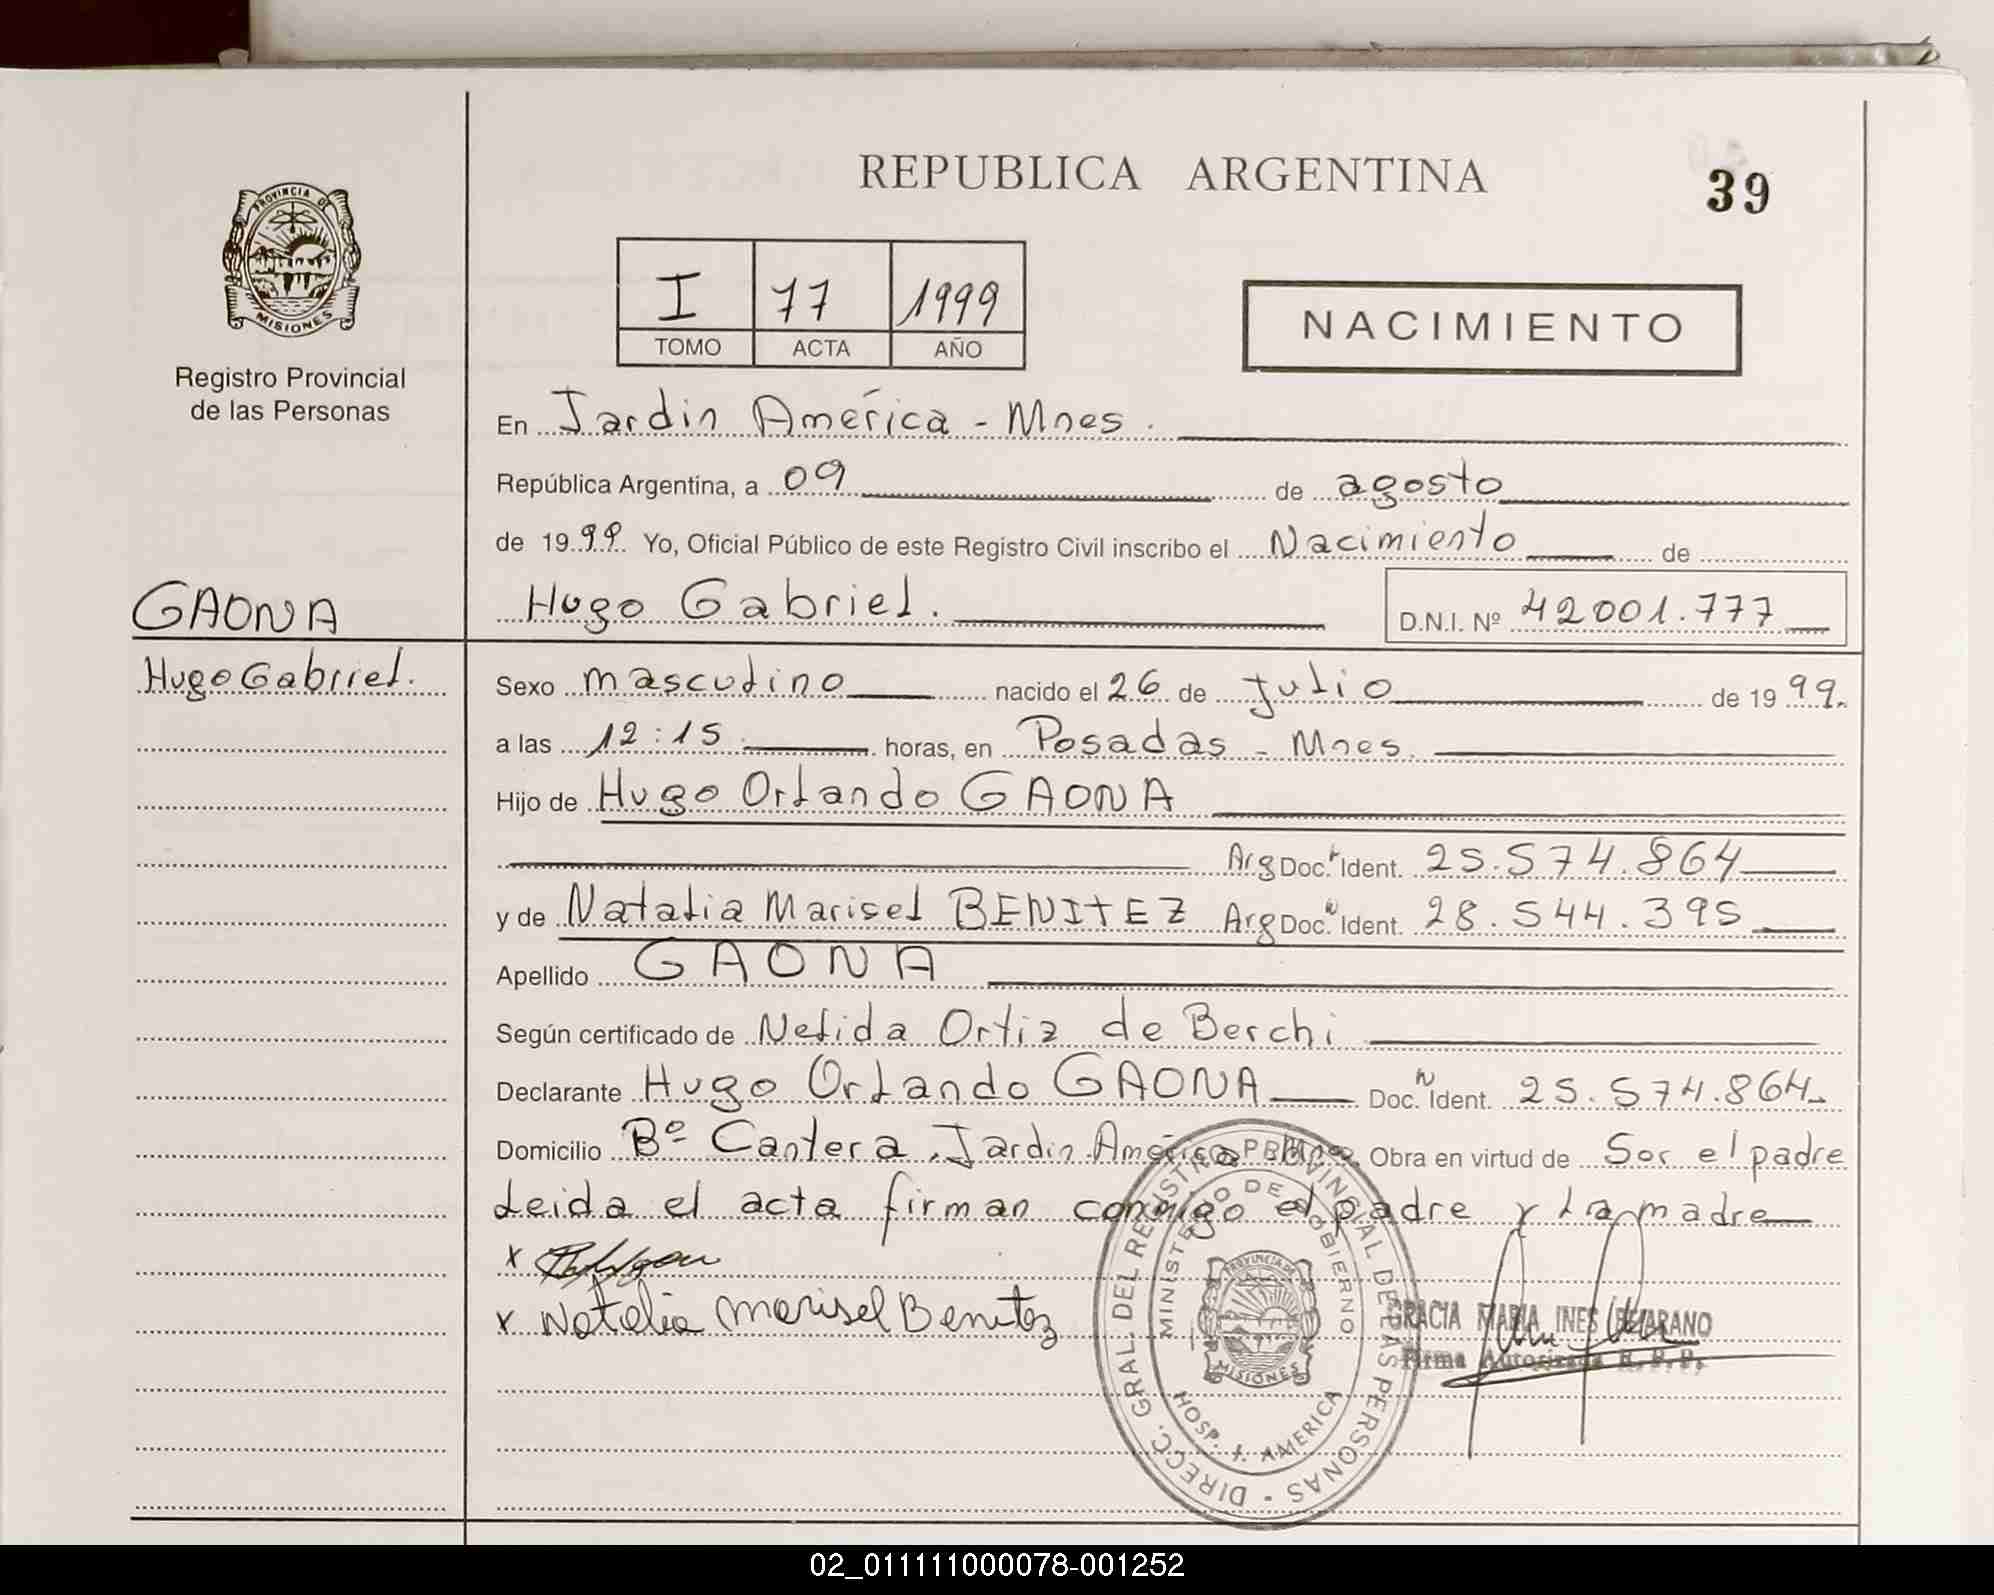 REPUBLICA ARGENTINA
39
PROVINCIA DE
MISIONES
Registro Provincial
de las Personas
I 77 1999
TOMO ACTA AÑO
NACIMIENTO
En Jardin América - Mnes.
República Argentina, a 09 de agosto
de 1999 Yo, Oficial Público de este Registro Civil inscribo el Nacimiento de
GAONA
Hugo Gabriel. D.N.I. Nº 42001.777
Hugo Gabriel.
Sexo masculino nacido el 26 de Julio de 1999.
a las 12:15 horas, en Posadas - Mnes.
Hijo de Hugo Orlando GAONA
Arg Doc. Ident. 25.574.864
y de Natalia Marisel BENITEZ Arg Doc. Ident. 28.544.395
Apellido GAONA
Según certificado de Nelida Ortiz de Berchi
Declarante Hugo Orlando GAONA Doc. Ident. 25.574.864
Domicilio Bº Cantera, Jardin América Mnes Obra en virtud de Ser el padre
Leida el acta firman conmigo el padre y la madre
x
x Natalia Marisel Benitez
GRACIA MARIA INES BEJARANO
Firma Autorizada R.P.P.
DIRECC. GRAL. DEL REGISTRO PROVINCIAL DE LAS PERSONAS
MINISTERIO DE GOBIERNO
PROVINCIA DE
MISIONES
HOSP. J. AMERICA
02_011111000078-001252